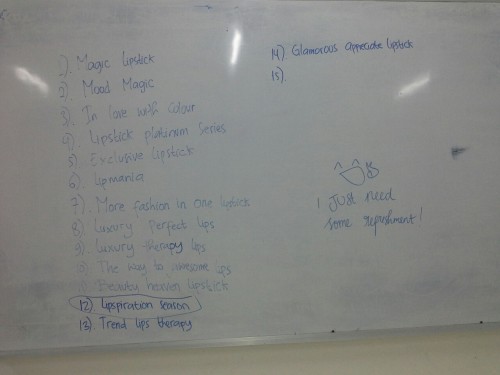 1). Magic lipstick
2). Mood Magic
3). In love with colour
4). Lipstick platinum series
5). Exclusive lipstick
6). lipmania
7). More fashion in one lipstick
8). Luxury Perfect lips
9). Luxury therapy lips
The way to awesome ips
Beauty heaven lipstick
12). lipspiration season
13). Trend lips therapy
14). Glamorous appreciate lipstick
15).
I Just need
some repushment!